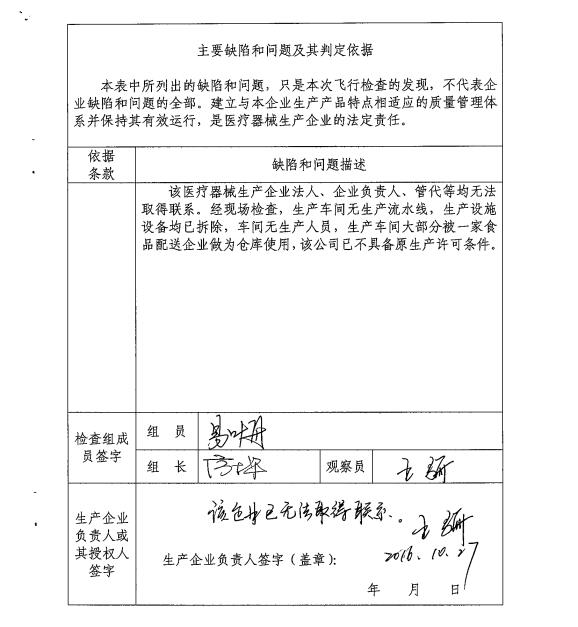 主要缺陷和问题及其判定依据
本表中所列出的缺陷和问题，只是本次飞行检查的发现，不代表企
业缺陷和问题的全部。建立与本企业生产产品特点相适应的质量管理体
系并保持其有效运行，是医疗器械生产企业的法定责任。
依据
条款
缺陷和问题描述
该医疗器械生产企业法人、企业负责人、管代等均无法
取得联系。经现场检查，生产车间无生产流水线，生产设施
设备均已拆除，车间无生产人员，生产车间大部分被一家食
品配送企业做为仓库使用，该公司已不具备原生产许可条件。
检查组成
员签字
组 员
组 长
观察员
生产企业
负责人或
其授权人
签字
该企业已无法取得联系。
生产企业负责人签字（盖章）：
2016.10.27
年 月 日